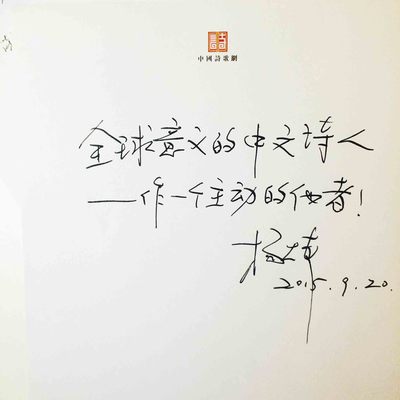 中國詩歌網
全球意义的中文诗人
——作一个主动的他者!
杨炼
2015.9.20.